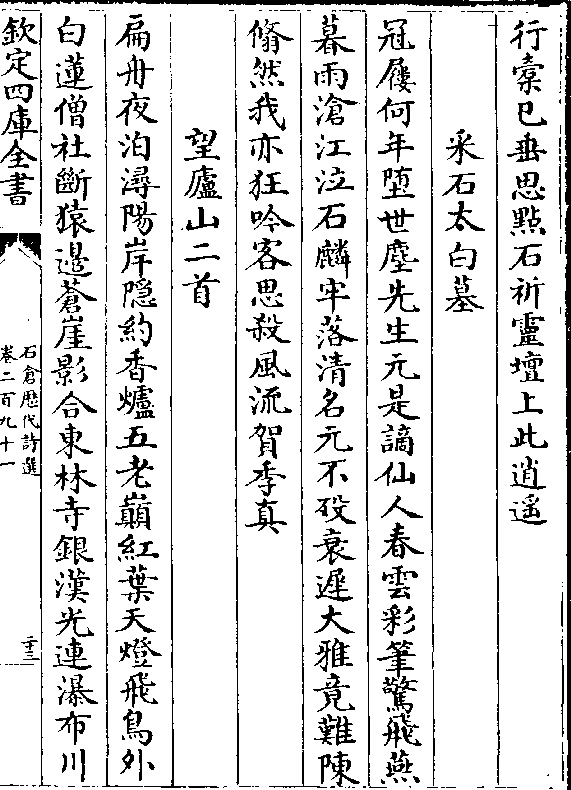 行橐已垂思點石祈靈壇上此逍遥
采石太白墓
冠屨何年堕世塵先生元是謫仙人春雲彩筆驚飛燕
暮雨滄江泣石麟牢落清名元不殁衰遲大雅竟難陳
翛然我亦狂吟客思殺風流賀季真
望廬山二首
扁舟夜泊潯陽岸隠約香爐五老巔紅葉天燈飛鳥外
白蓮僧社斷猿邉蒼崖影合東林寺銀漢光連瀑布川
欽定四庫全書
石倉歴代詩選
卷二百九十一
二十三